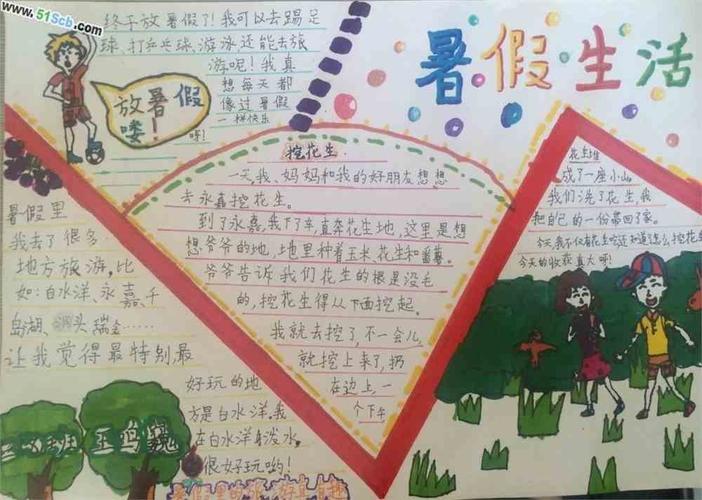 www.51Scb.com
暑假生活
终于放暑假了!我可以去踢足
球、打乒乓球、游泳还能去旅
游呢!我真
想每天都
像过暑假
一样快乐
呀!
放暑假
喽!
挖花生
一天,我、妈妈和我的好朋友想想
去永嘉挖花生。
到了永嘉,我下了车,直奔花生地,这里是想
想爷爷的地,地里种着玉米、花生和番薯。
爷爷告诉我们花生的根是没毛
的,挖花生得从下面挖起。
我就去挖了,不一会儿,
就挖上来了,扔
在边上,一
个下午
花生堆
成了一座小山
我们洗了花生,我
把自己的一份带回了家。
今天的收获真大呀!
暑假里
我去了很多
地方旅游,比
如:白水洋、永嘉、千
岛湖、头瑞金……
让我觉得最特别、最
好玩的地
方是白水洋,我
在白水洋身泼水,
很好玩哟!
班
王鸣巍